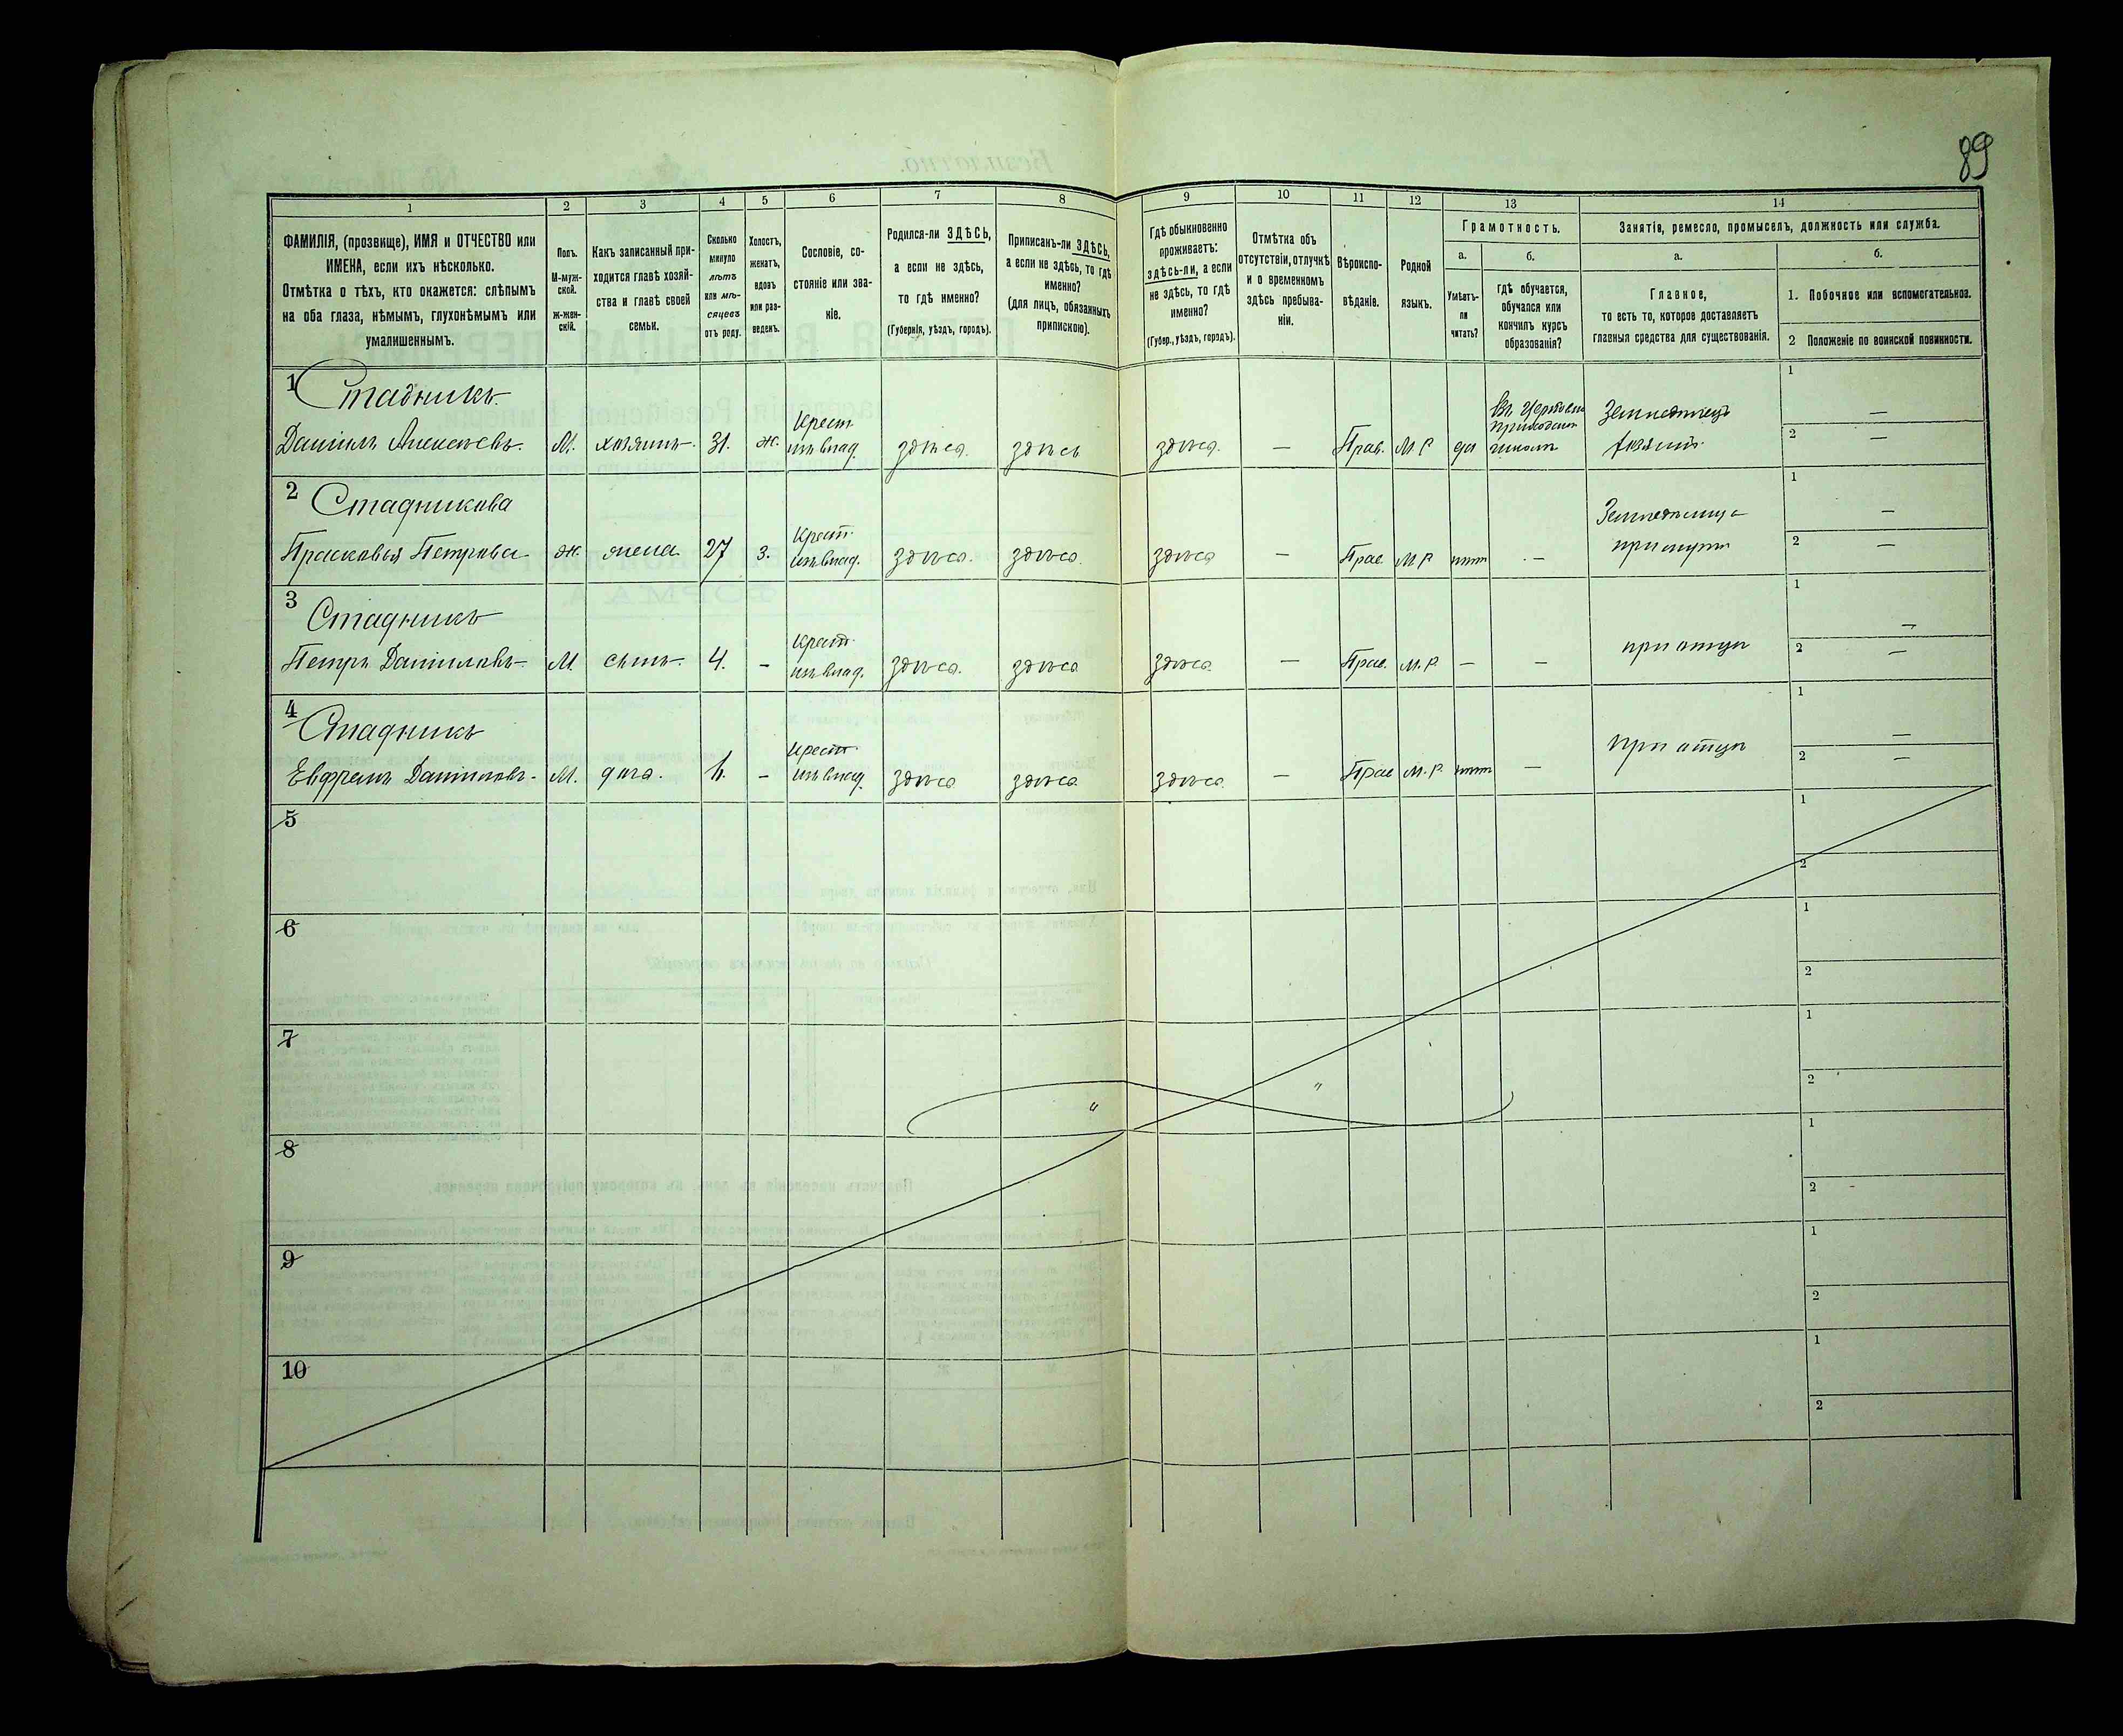 89
1
2
3
4
5
6
7
8
9
10
11
12
13
14
ФАМИЛІЯ, (прозвище), ИМЯ и ОТЧЕСТВО или
ИМЕНА, если ихъ нѣсколько.
Отмѣтка о тѣхъ, кто окажется: слѣпымъ
на оба глаза, нѣмымъ, глухонѣмымъ или
умалишеннымъ.
Полъ.
М-муж-
ской.
Ж-жен-
скій.
Какъ записанный при-
ходится главѣ хозяй-
ства и главѣ своей
семьи.
Сколько
минуло
лѣтъ
или мѣ-
сяцевъ
отъ роду.
Холостъ,
женатъ,
вдовъ
или раз-
веденъ.
Сословіе, со-
стояніе или зва-
ніе.
Родился-ли ЗДѢСЬ,
а если не здѣсь,
то гдѣ именно?
(Губернія, уѣздъ, городъ).
Приписанъ-ли ЗДѢСЬ,
а если не здѣсь, то гдѣ
именно?
(для лицъ, обязанныхъ
припискою).
Гдѣ обыкновенно
проживаетъ:
здѣсь-ли, а если
не здѣсь, то гдѣ
именно?
(Губер., уѣздъ, городъ).
Отмѣтка объ
отсутствіи, отлучкѣ
и о временномъ
здѣсь пребыва-
ніи.
Вѣроиспо-
вѣданіе.
Родной
языкъ.
Грамотность.
а.
Умѣетъ-
ли
читать?
б.
гдѣ обучается,
обучался или
кончилъ курсъ
образованія?
Занятіе, ремесло, промыселъ, должность или служба.
а.
Главное,
то есть то, которое доставляетъ
главныя средства для существованія.
б.
1. Побочное или вспомогательное.
2 Положеніе по воинской повинности.
1 Стадникъ
Даніилъ Алексѣевъ. М. хозяинъ 31. ж. Крест. изъ влад. здѣсь. здѣсь здѣсь. — Прав. М Р да Въ школѣ Земледѣлецъ хозяинъ 1 — 2 —
2 Стадникова
Прасковья Петрова ж. жена 27 з. Крест. изъ влад. здѣсь. здѣсь. здѣсь — Прав. М Р нѣтъ — Земледѣлица при мужѣ 1 — 2 —
3 Стадникъ
Петръ Даніиловъ М сынъ 4. — Крест. изъ влад. здѣсь. здѣсь здѣсь — Прав. М.Р. — — при отцѣ 1 — 2 —
4 Стадникъ
Евфремъ Даниловъ М. — Крест. изъ влад. здѣсь здѣсь здѣсь. — Прав М.Р. нѣтъ — при отцѣ 1 — 2 —
5
1
2
6
1
2
7
1
2
8
1
2
9
1
2
10
1
2